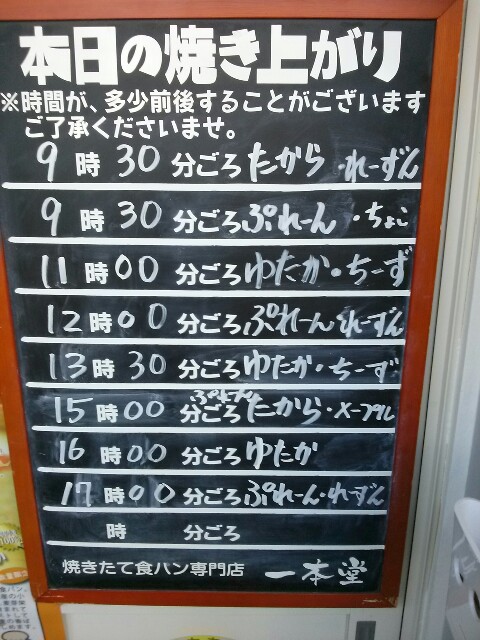 本日の焼き上がり
※時間が、多少前後することがございます
ご了承くださいませ。
9時30分ごろ たから・れーずん
9時30分ごろ ぷれーん・ちょこ
11時00分ごろ ゆたか・ちーず
12時00分ごろ ぷれーん れーずん
13時30分ごろ ゆたか・ちーず
15時00分ごろ たから・メープル
16時00分ごろ ゆたか
17時00分ごろ ぷれーん・れーずん
時 分ごろ
焼きたて食パン専門店 一本堂